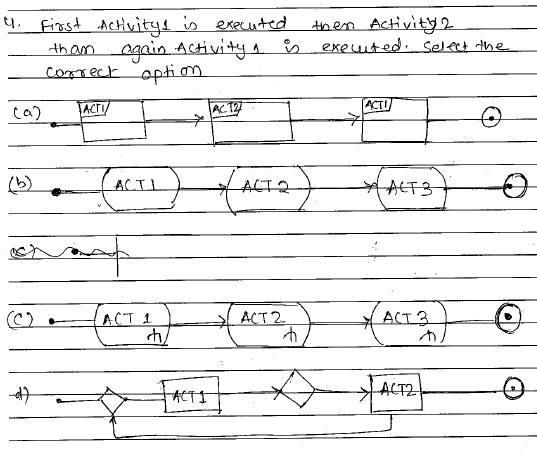 4. First Activity1 is executed then Activity2
than again Activity 1 is executed. Select the
correct option
(a) ACT1 ACT2 ACT1
(b) ACT 1 ACT 2 ACT 3
(c)
(c) ACT 1 ACT 2 ACT 3
d) ACT 1 ACT2